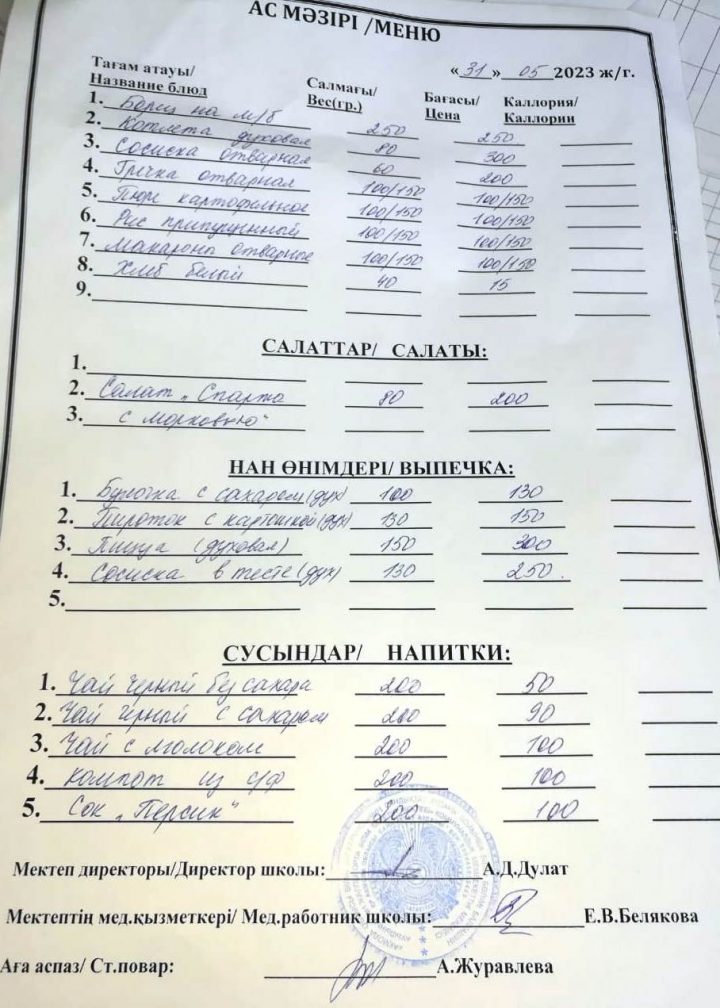 АС МӘЗІРІ /МЕНЮ
« 31 » 05 2023 ж/г.
Тағам атауы/ Салмағы/ Бағасы/ Каллория/
Название блюд Вес(гр.) Цена Каллории
1. Борщ на м/б 250 250
2. Котлета духовая 80 300
3. Сосиска отварная 60 200
4. Гречка отварная 100/150 100/150
5. Пюре картофельное 100/150 100/150
6. Рис припущенный 100/150 100/150
7. Макароны отварные 100/150 100/150
8. Хлеб белый 40 15
9.
САЛАТТАР/ САЛАТЫ:
1.
2. Салат „Спарта 80 200
3. с морковью“
НАН ӨНІМДЕРІ/ ВЫПЕЧКА:
1. Булочка с сахаром (дух) 100 130
2. Пирожок с картошкой (дух) 130 150
3. Пицца (духовая) 150 300
4. Сосиска в тесте (дух) 130 250.
5.
СУСЫНДАР/ НАПИТКИ:
1. Чай черный без сахара 200 50
2. Чай чёрный с сахаром 200 90
3. Чай с молоком 200 100
4. Компот из с/ф 200 100
5. Сок „Персик“ 200 100
Мектеп директоры/Директор школы: А.Д.Дулат
Мектептің мед.қызметкері/ Мед.работник школы: Е.В.Белякова
Аға аспаз/ Ст.повар: А.Журавлева